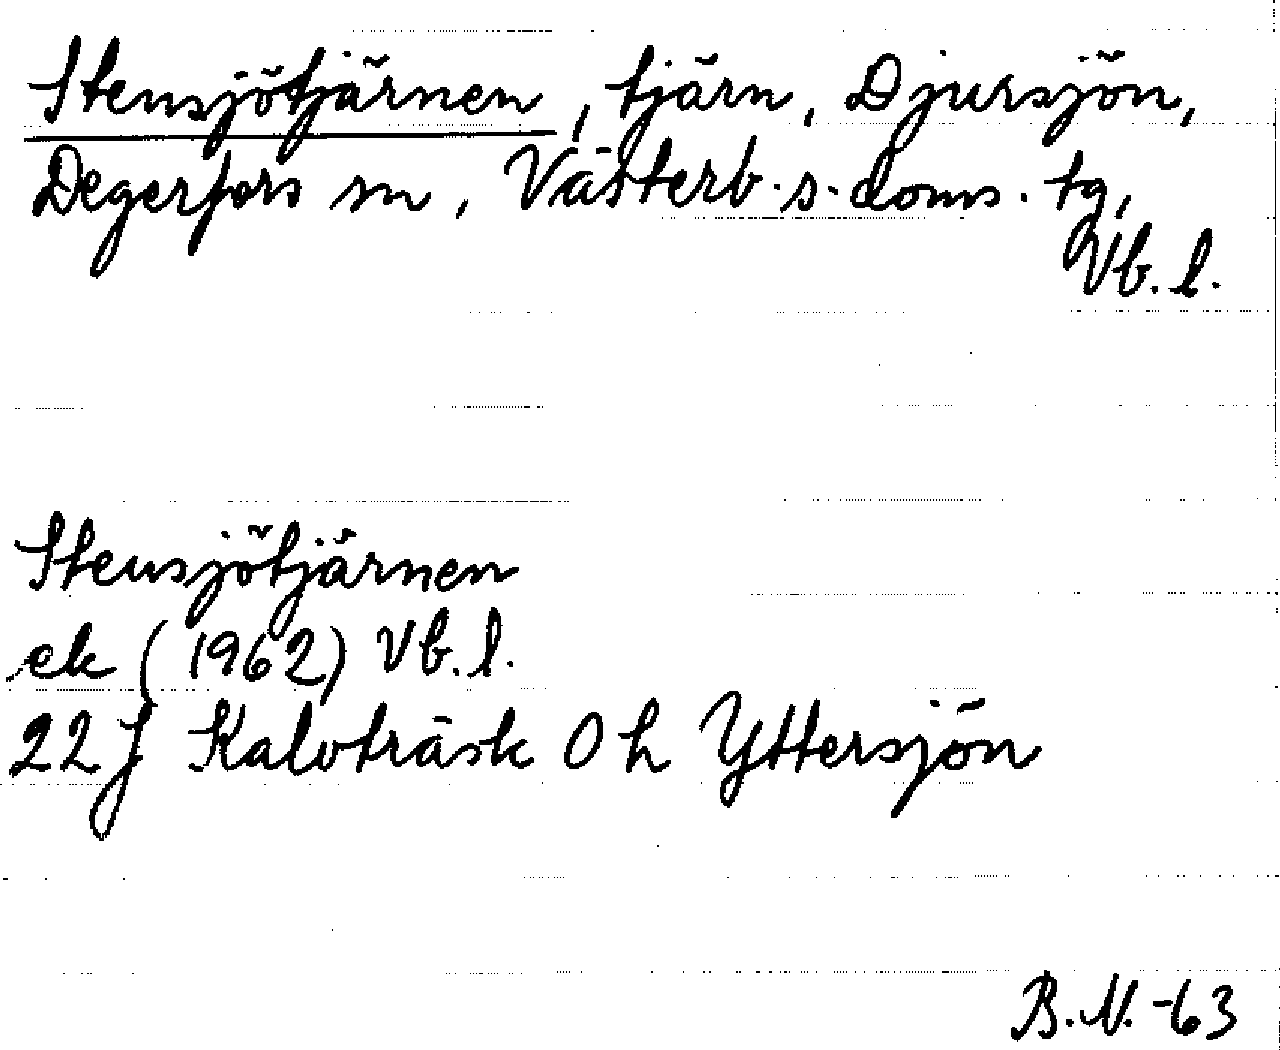 Stensjötjärnen, tjärn, Djursjön,
Degerfors sn, Västerb. s. doms. tg,
Vb. l.
Stensjötjärnen
ek (1962) Vb. l.
22 J Kalvträsk 0 h Yttersjön
B.N. -63